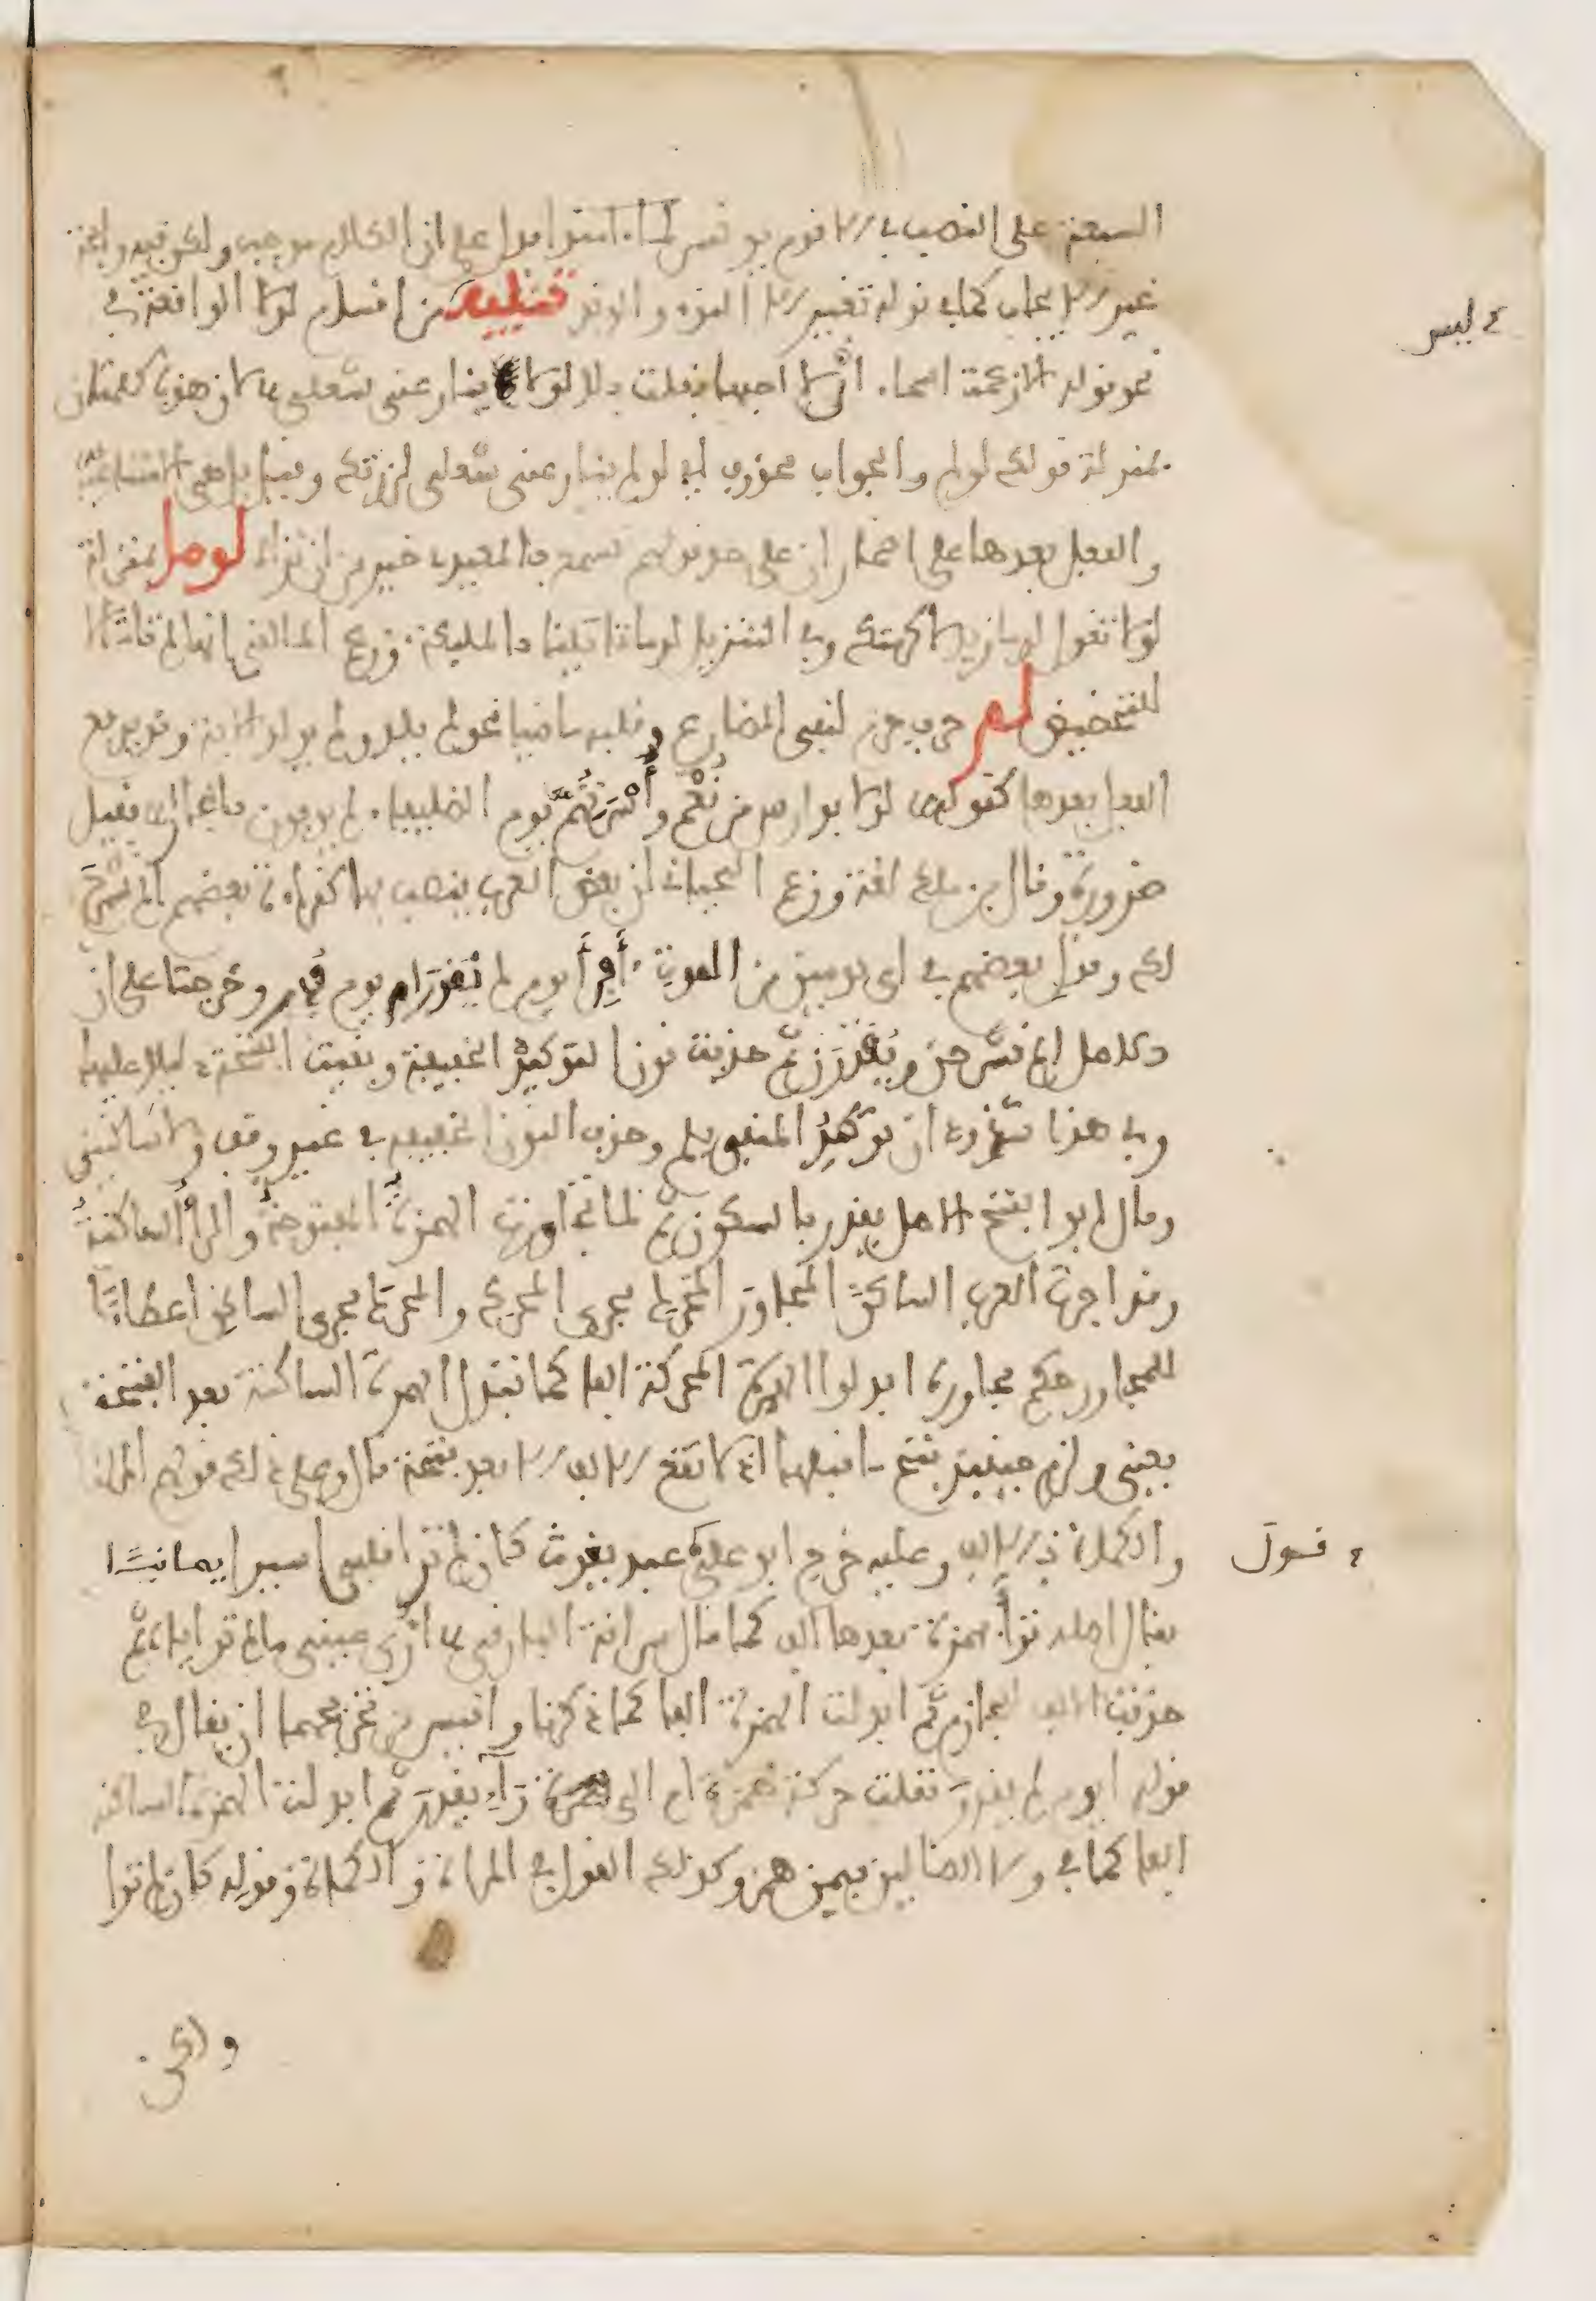 السبعة على النصب في الا قوم يونس لما امنوا فدل على ان الكلام موجب ولكن فيه رايحة
غير الايجاب كما في قوله تغير الا النوء والوتد تنبيه من اقسام لولا الواقعة في
نحو قوله الا زعمت اسماء ان لا احبها فقلت بلى لولا ينازعني شغلي لان هذه كلمتان
بمنزلة قولك لو لم والجواب محذوف اي لو لم ينازعني شغلي لزرتك وقيل بل هي الامتناعية
والفعل بعدها على اضمار ان على حد قولهم تسمع بالمعيدي خير من ان تراه لوما بمنزلة
لولا تقول لوما زيد لاكرمتك وفي التنزيل لوما تاتينا بالمليكة وزعم المالقي انها لم تات الا
للتحضيض لم حرف جزم لنفي المضارع وقلبه ماضيا نحو لم يلد ولم يولد الاية وقد يرفع
الفعل بعدها كقوله لولا فوارس من نعم واسرتهم يوم الصليفاء لم يوفون بالجار فقيل
ضرورة وقال بن ملك لغة وزعم اللحياني ان بعض العرب ينصب بها كقراءة بعضهم الم نشرح
لك وقول بعضهم في اي يومي من الموت افر ايوم لم يقدر ام يوم قدر وخرجتا على ان
الاصل الم نشرحن ويقدرن ثم حذفت نون التوكيد الخفيفة وبقيت الفتحة دليلا عليها
وفي هذا شذوذان توكيد المنفي بلم وحذف النون الخفيفة في غير وقف ولا ساكنين
وقال ابو الفتح الاصل يقدر بالسكون ثم لما تجاورت الهمزة المفتوحة والراء الساكنة
وقد اجرت العرب الساكن المجاور المحرك مجرى المحرك والمحرك مجرى الساكن اعطاءا
للمجاور حكم مجاوره ابدلوا الهمزة المحركة الفا كما تبدل الهمزة الساكنة بعد الفتحة
يعني ولزم حينيذ فتح ما قبلها اذ لا تقع الالف الا بعد فتحة قال وعلى ذلك قولهم المراة
والكماة بالالف وعليه خرج ابو علي عبد يغوث كان لم ترا قبلي اسيرا يمانيا
فقال اصله ترأى بهمزة بعدها الف كما قال سراقة البارقي ارى عيني ما لم ترأياه ثم
حذفت الالف للجازم ثم ابدلت الهمزة الفا كما ذكرنا واقيس من تخريجهما ان يقال في
قوله ايوم لم يقدر نقلت حركة همزة ام الى راء يقدر ثم ابدلت الهمزة الساكنة
الفا كما في ولا الضالين فيمن همز وكذلك القول في المراة والكماة وقوله كان لم ترا
ولكن
ليس
قول